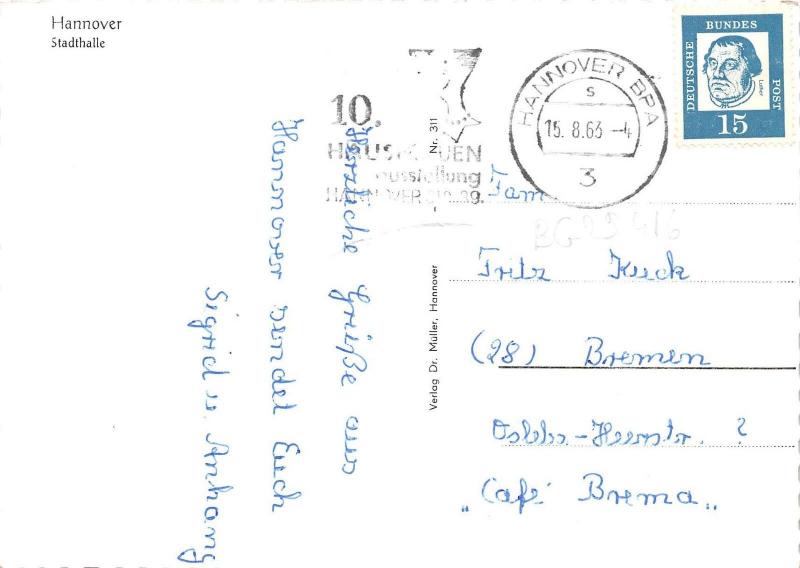 Hannover
Stadthalle
10.
HAUSFRAUEN
ausstellung
HANNOVER
HANNOVER BPA
s
15.8.63 -4
3
DEUTSCHE BUNDES POST
Luther
15
Nr. 311
Verlag Dr. Müller, Hannover
Herzliche Grüße aus
Hannover sendet Euch
Sigrid u. Anhang
Fam.
Fritz Kuck
(28) Bremen
-Heerstr. ?
„Café Brema„
BG 29 416